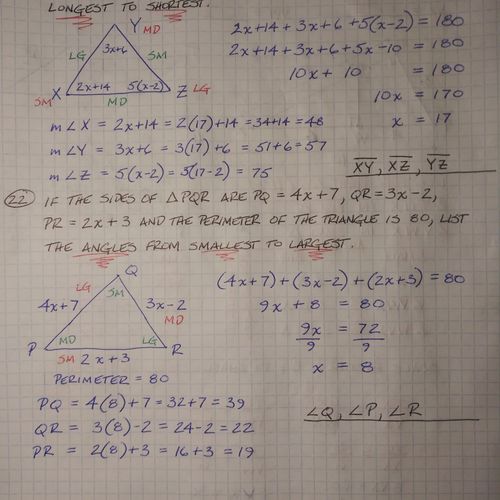 LONGEST TO SHORTEST.
Y MD
3x+6
LG SM
SM X 2x+14 5(x-2) Z LG
MD
2x+14 + 3x+6 + 5(x-2) = 180
2x+14 + 3x+6 + 5x-10 = 180
10x + 10 = 180
10x = 170
x = 17
m∠X = 2x+14 = 2(17)+14 = 34+14 = 48
m∠Y = 3x+6 = 3(17)+6 = 51+6 = 57
m∠Z = 5(x-2) = 5(17-2) = 75
XY, XZ, YZ
22 IF THE SIDES OF △PQR ARE PQ = 4x+7, QR = 3x-2,
PR = 2x+3 AND THE PERIMETER OF THE TRIANGLE IS 80, LIST
THE ANGLES FROM SMALLEST TO LARGEST.
Q
LG SM
4x+7 3x-2
MD
P MD LG R
SM 2x+3
PERIMETER = 80
(4x+7)+(3x-2)+(2x+3) = 80
9x + 8 = 80
9x = 72
9 9
x = 8
PQ = 4(8)+7 = 32+7 = 39
QR = 3(8)-2 = 24-2 = 22
PR = 2(8)+3 = 16+3 = 19
∠Q, ∠P, ∠R